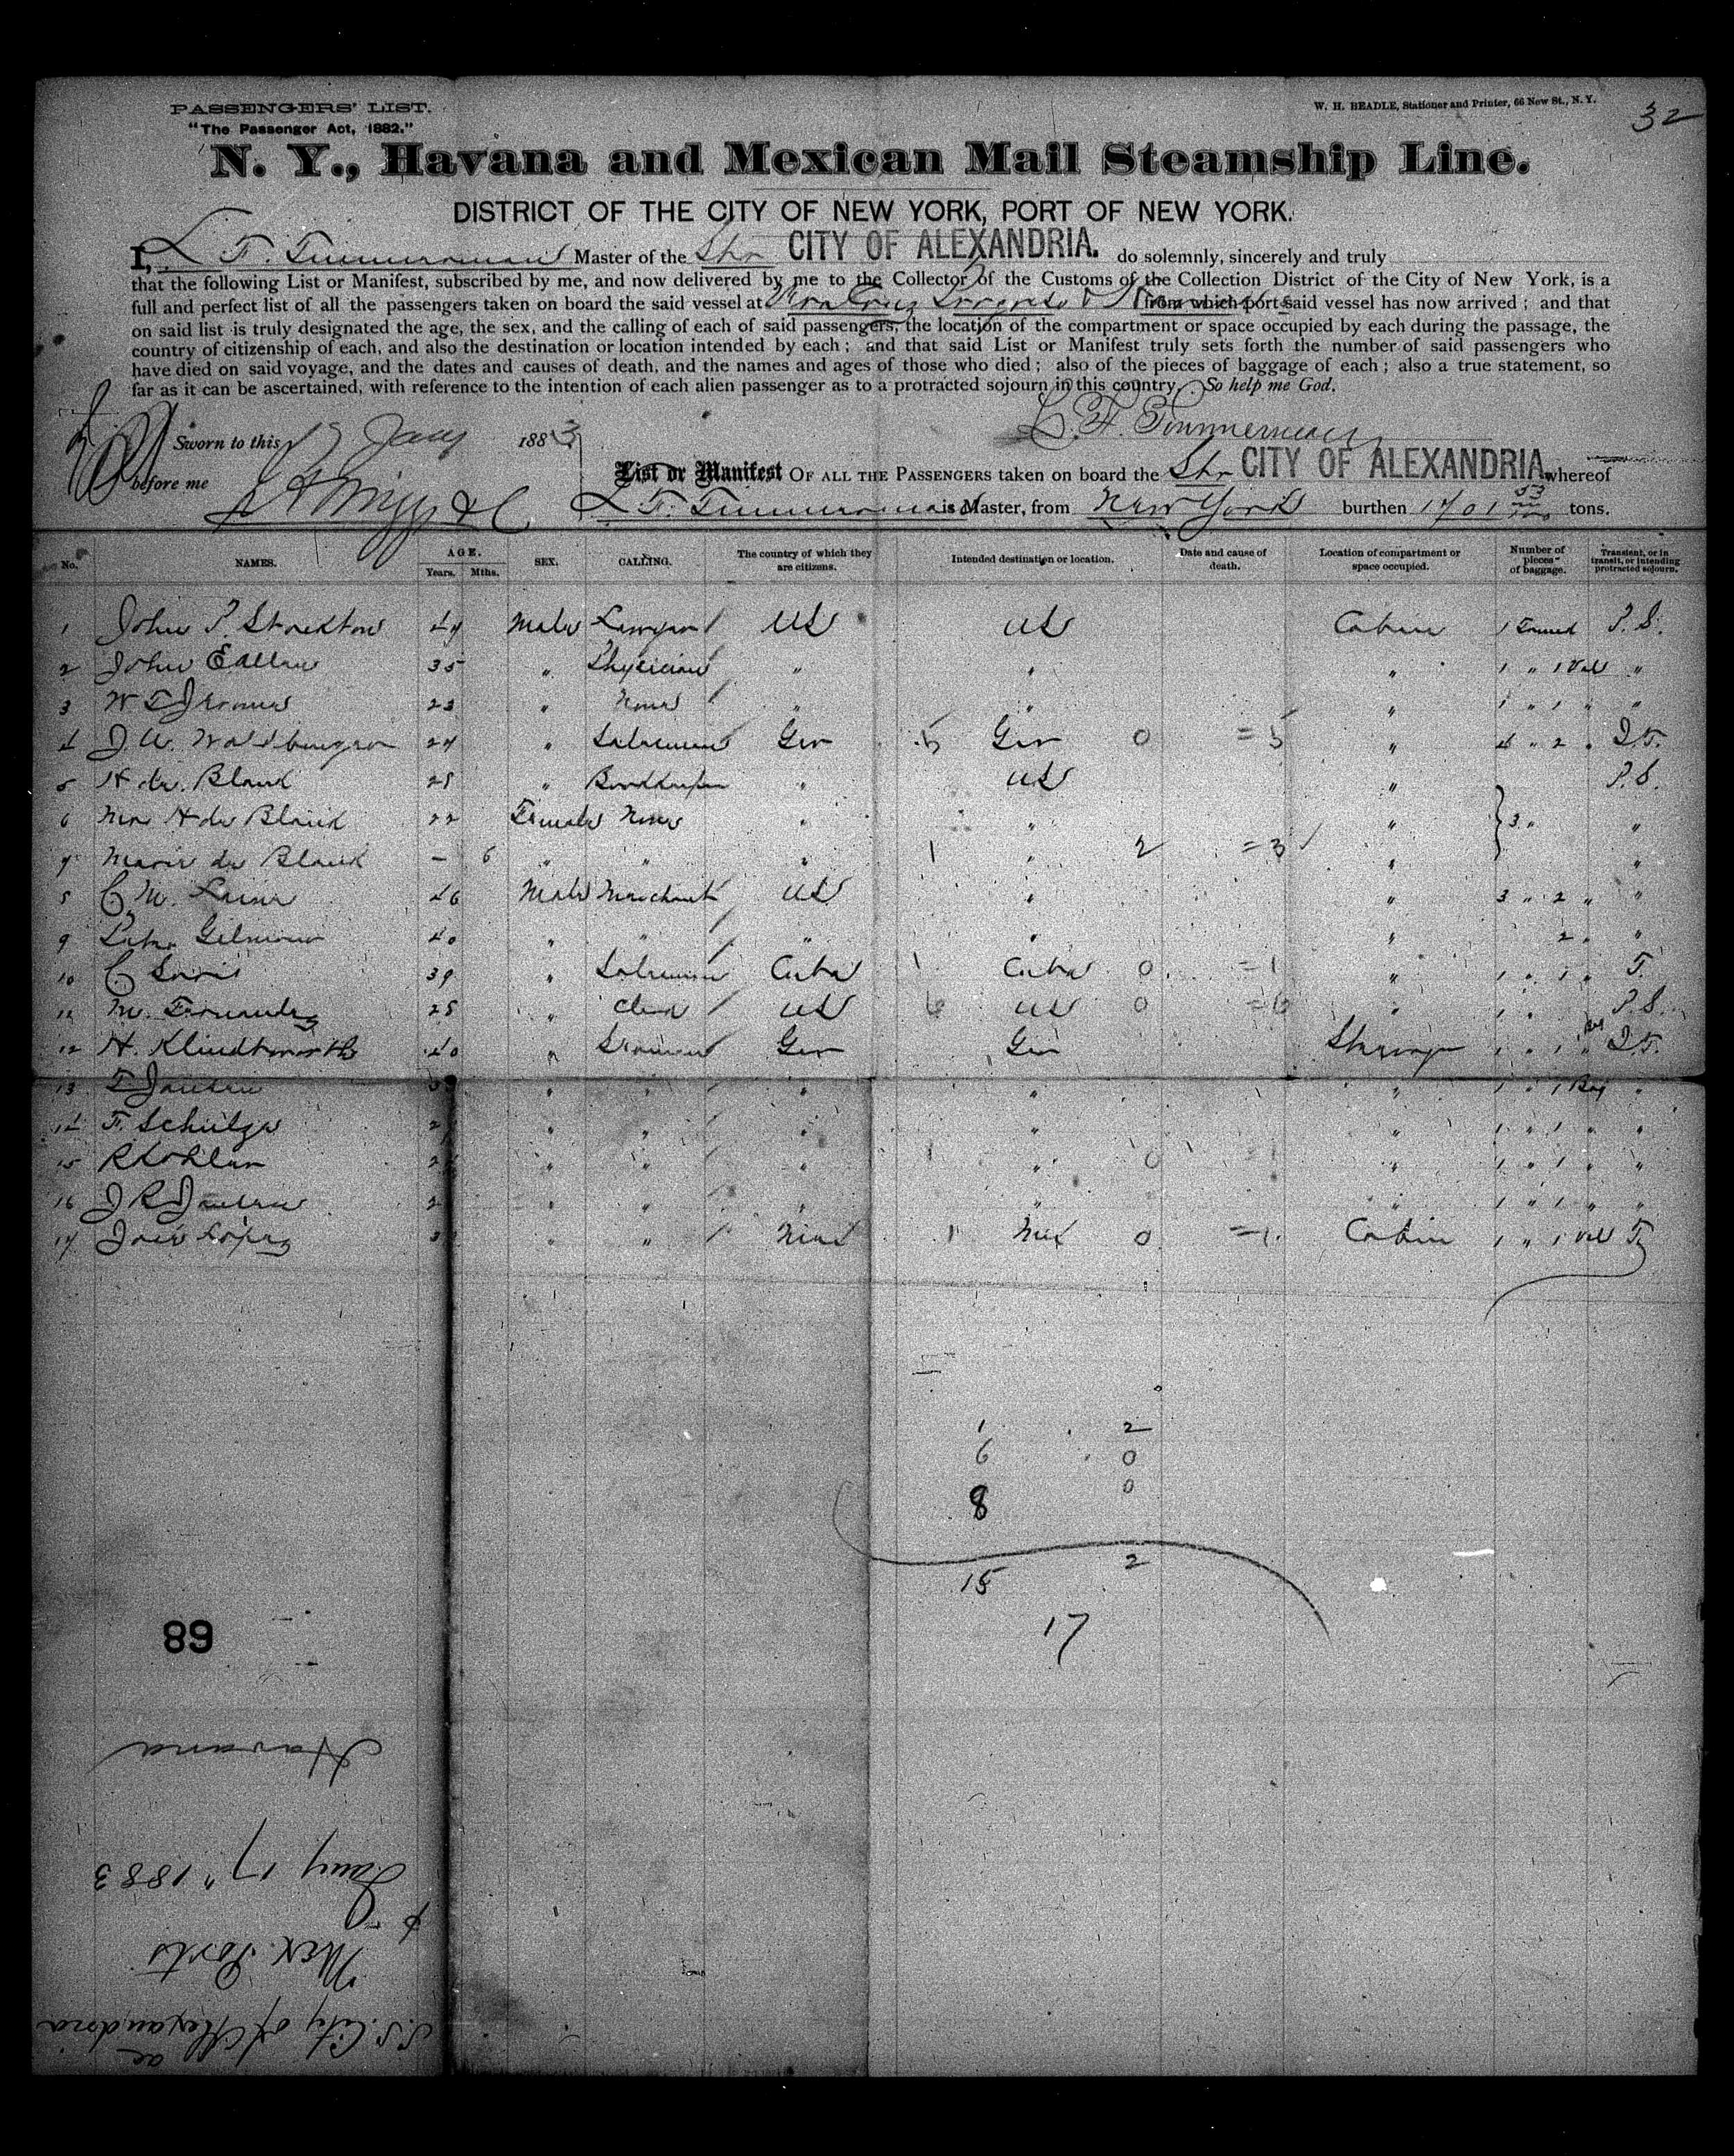 PASSENGERS' LIST.
"The Passenger Act, 1882."
W. H. BEADLE, Stationer and Printer, 66 New St., N. Y.
32
N. Y., Havana and Mexican Mail Steamship Line.
DISTRICT OF THE CITY OF NEW YORK, PORT OF NEW YORK.
I, L. F. Timmerman Master of the Str CITY OF ALEXANDRIA. do solemnly, sincerely and truly
that the following List or Manifest, subscribed by me, and now delivered by me to the Collector of the Customs of the Collection District of the City of New York, is a
full and perfect list of all the passengers taken on board the said vessel at Vera Cruz Progreso & Havana from which port said vessel has now arrived; and that
on said list is truly designated the age, the sex, and the calling of each of said passengers, the location of the compartment or space occupied by each during the passage, the
country of citizenship of each, and also the destination or location intended by each; and that said List or Manifest truly sets forth the number of said passengers who
have died on said voyage, and the dates and causes of death, and the names and ages of those who died; also of the pieces of baggage of each; also a true statement, so
far as it can be ascertained, with reference to the intention of each alien passenger as to a protracted sojourn in this country. So help me God.
L. F. Timmerman
Sworn to this 17 Jany 1883
before me
List or Manifest OF ALL THE PASSENGERS taken on board the Str CITY OF ALEXANDRIA whereof
L. F. Timmerman is Master, from New York burthen 1701 53/100 tons.
No. NAMES. AGE. Years. Mths. SEX. CALLING. The country of which they are citizens. Intended destination or location. Date and cause of death. Location of compartment or space occupied. Number of pieces of baggage. Transient, or in transit, or intending protracted sojourn.
1 John P. Stockton 47 Male Lawyer US US Cabin 1 Trunk P.S.
2 John E Allen 35 " Physician " " " 1 " 1 Val "
3 23 " None " " " 1 " 1 " "
4 24 " Salesman Ger 5 Ger 0 = 5 " 4 " 2 " I.T.
5 H de Blanck 25 " Bookkeeper " US " P.S.
6 Mrs H de Blanck 22 Female None " " " 3 " "
7 Marie de Blanck – 6 " " " 1 " 2 = 3 " "
8 C. M. 46 Male Merchant US " " 3 " 2 " "
9 Gilmour 40 " " " " " 2 " "
10 C. 39 " Salesman Cuba 1 Cuba 0 = 1 " 1 " 1 " T.
11 M. Fernandez 25 " Clerk US 6 US 0 = 6 " 1 " P.S.
12 H. Klindtworth 40 " Seaman Ger Ger Steerage 1 " 1 Bag I.T.
13 " " " " " 1 " 1 Bag "
14 F. Schultze 2 " " " " " 1 " 1 " "
15 R Kohler 2 " " " " " 1 " 1 " "
16 2 " " " " " 1 " 1 " "
17 José Lopez 3 " " Mex 1 Mex 0 = 1 Cabin 1 " 1 Val T.
1 2
6 0
8 0
15 2
17
89
S.S. City of Alexandria
Mex. Ports
Jany 17" 1883
Havana